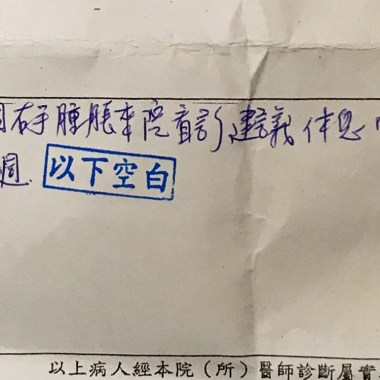 因右手腫脹本院看診建議休息
週.
以下空白
以上病人經本院（所）醫師診斷屬實